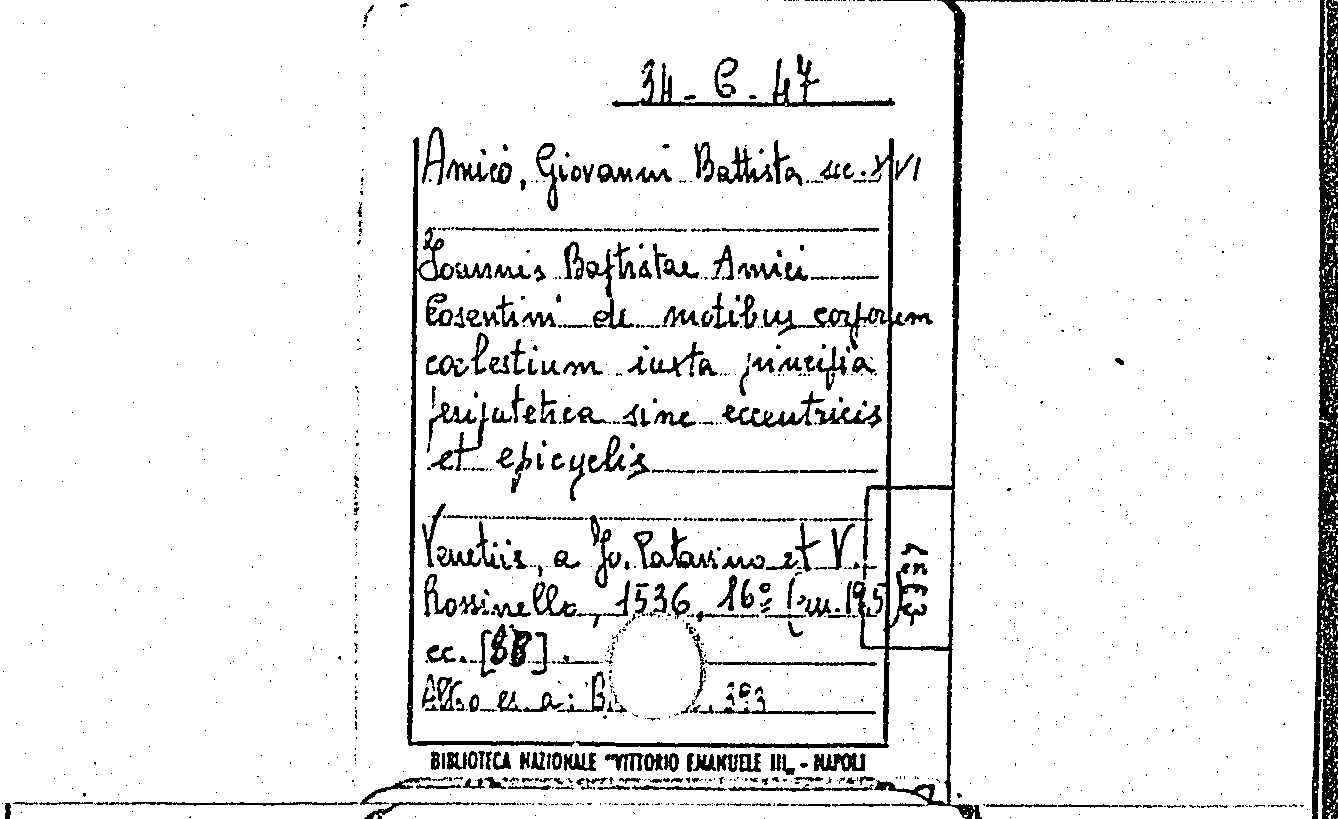 34-6-47
Amico, Giovanni Battista sec. XVI
Joannis Baptistae Amici
Cosentini de motibus corporum
coelestium iuxta principia
peripatetica sine eccentricis
et epicyclis
Venetiis, a Jo. Patavino et V.
Rossinello, 1536, 16º (cm. 19,5)
cc. [88].
Altro es. a: B. 393
BIBLIOTECA NAZIONALE "VITTORIO EMANUELE III„ - NAPOLI